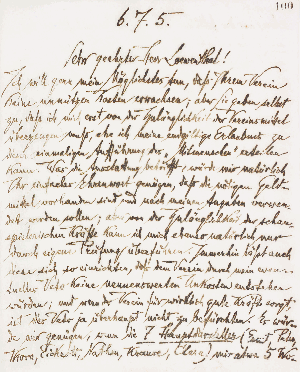 6. 7. 5.
Sehr geehrter Herr Loewenthal!
Ich will gern mein Möglichstes tun, daß Ihrem Verein
keine unnützen Kosten erwachsen; aber Sie geben selbst
zu, daß ich mich erst von der Zulänglichkeit der Vereinsmittel
überzeugen muß, ehe ich meine endgültige Erlaubnis zu
der einmaligen Aufführung der „Mitmenschen" erteilen
kann. Was die Ausstattung betrifft, würde mir natürlich
Ihr einfaches Ehrenwort genügen, daß die nötigen Geld-
mittel vorhanden sind und nach meinen Angaben verwen-
det werden sollen; aber von der Zulänglichkeit der schau-
spielerischen Kräfte kann ich mich ebenso natürlich nur
durch eigene Prüfung überführen. Immerhin läßt auch
diese sich so einrichten, daß dem Verein durch mein even-
tuelles Veto keine nennenswerten Unkosten entstehen
würden; und wenn der Verein für wirklich gute Kräfte sorgt,
ist das Veto ja überhaupt nicht zu befürchten. Es wür-
de mir genügen, wenn die 7 Hauptdarsteller (Ernst, Peter,
Thora, , , , ) mir etwa 5 Wo-